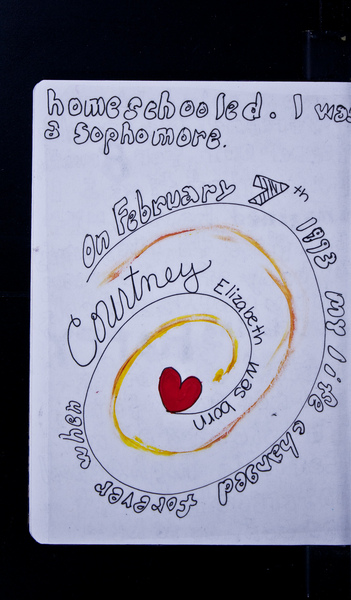 homeschooled. I was
a sophomore.
On February 7th 1993 my life changed forever when
Courtney Elizabeth was born